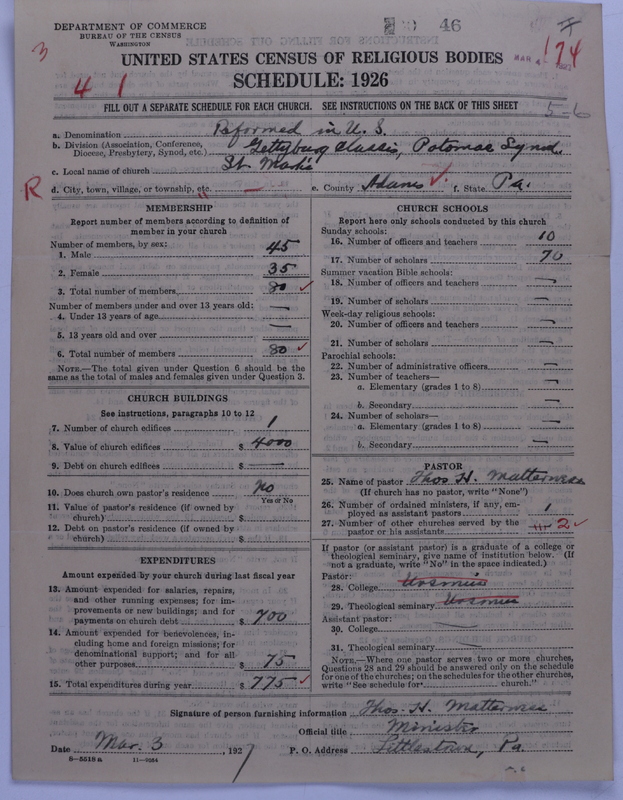 DEPARTMENT OF COMMERCE
BUREAU OF THE CENSUS
WASHINGTON
46
3
174
MAR 4
UNITED STATES CENSUS OF RELIGIOUS BODIES
4 1
SCHEDULE: 1926
FILL OUT A SEPARATE SCHEDULE FOR EACH CHURCH. SEE INSTRUCTIONS ON THE BACK OF THIS SHEET
5-6
a. Denomination Reformed in U.S.
b. Division (Association, Conference, Diocese, Presbytery, Synod, etc.) Gettysburg Classis, Potomac Synod.
c. Local name of church St. Marks
R
d. City, town, village, or township, etc. — e. County Adams ✓ f. State Pa.
MEMBERSHIP
Report number of members according to definition of
member in your church
Number of members, by sex:
1. Male 45
2. Female 35
3. Total number of members 80 ✓
Number of members under and over 13 years old:
4. Under 13 years of age —
5. 13 years old and over —
6. Total number of members 80 ✓
NOTE.—The total given under Question 6 should be the
same as the total of males and females given under Question 3.
CHURCH BUILDINGS
See instructions, paragraphs 10 to 12
7. Number of church edifices 1
8. Value of church edifices $ 4000
9. Debt on church edifices $ —
10. Does church own pastor's residence No
Yes or No
11. Value of pastor's residence (if owned by
church) $
12. Debt on pastor's residence (if owned by
church) $
EXPENDITURES
Amount expended by your church during last fiscal year
13. Amount expended for salaries, repairs,
and other running expenses; for im-
provements or new buildings; and for
payments on church debt $ 700
14. Amount expended for benevolences, in-
cluding home and foreign missions; for
denominational support; and for all
other purposes $ 75
15. Total expenditures during year $ 775 ✓
CHURCH SCHOOLS
Report here only schools conducted by this church
Sunday schools:
16. Number of officers and teachers 10
17. Number of scholars 70
Summer vacation Bible schools:
18. Number of officers and teachers —
19. Number of scholars —
Week-day religious schools:
20. Number of officers and teachers —
21. Number of scholars —
Parochial schools:
22. Number of administrative officers —
23. Number of teachers—
a. Elementary (grades 1 to 8) —
b. Secondary —
24. Number of scholars—
a. Elementary (grades 1 to 8) —
b. Secondary —
PASTOR
25. Name of pastor Thos. H. Matterness
(If church has no pastor, write "None")
26. Number of ordained ministers, if any, em-
ployed as assistant pastors 1
27. Number of other churches served by the
pastor or his assistants 2 ✓
If pastor (or assistant pastor) is a graduate of a college or
theological seminary, give name of institution below. (If
not a graduate, write "No" in the space indicated.)
Pastor:
28. College Ursinus
29. Theological seminary Ursinus
Assistant pastor:
30. College —
31. Theological seminary —
NOTE.—Where one pastor serves two or more churches,
Questions 28 and 29 should be answered only on the schedule
for one of the churches; on the schedules for the other churches,
write "See schedule for church."
Signature of person furnishing information Thos. H. Matterness
Official title Minister
Date Mar. 3, 1927 P. O. Address Littlestown, Pa.
8—5518 a 11—9084